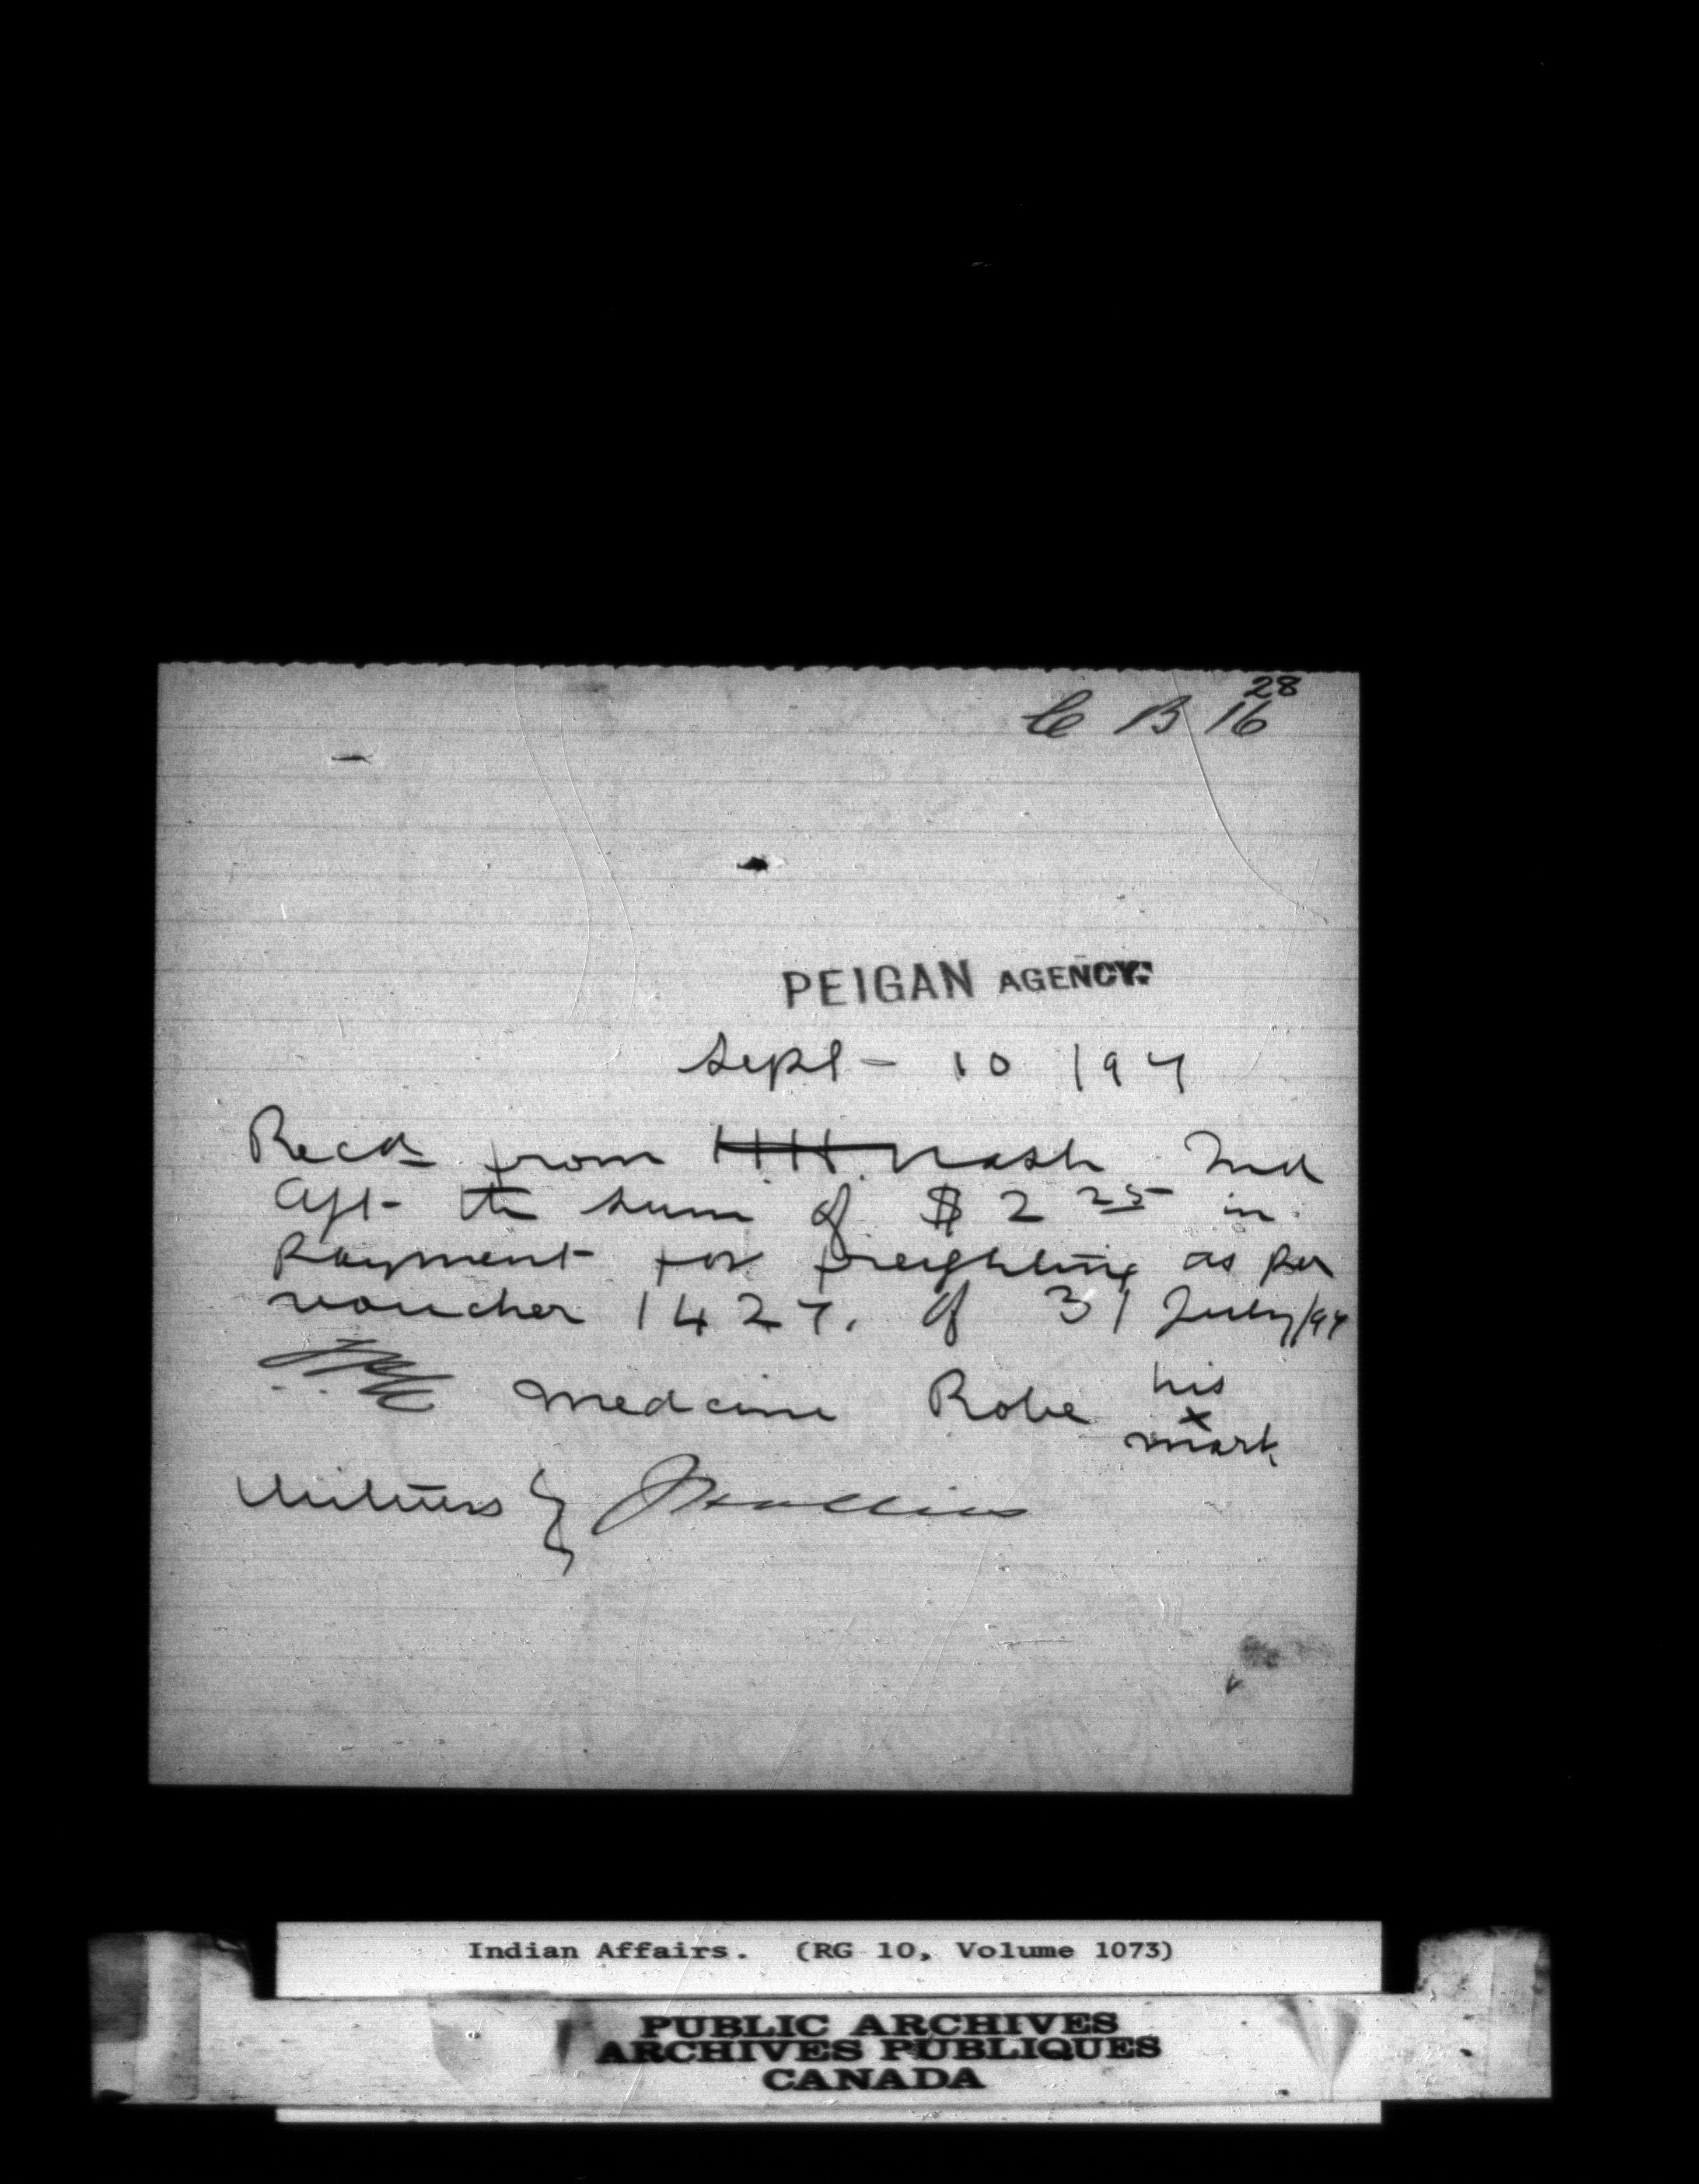 28
C B 16
PEIGAN AGENCY.
Sept - 10 / 97
Recd from H H Nash Ind
Agt the sum of $ 2 25 in
payment for freighting as per
voucher 1427. of 31 July/97
Medicine Robe his
x
mark
Witness }
Indian Affairs. (RG 10, Volume 1073)
PUBLIC ARCHIVES
ARCHIVES PUBLIQUES
CANADA